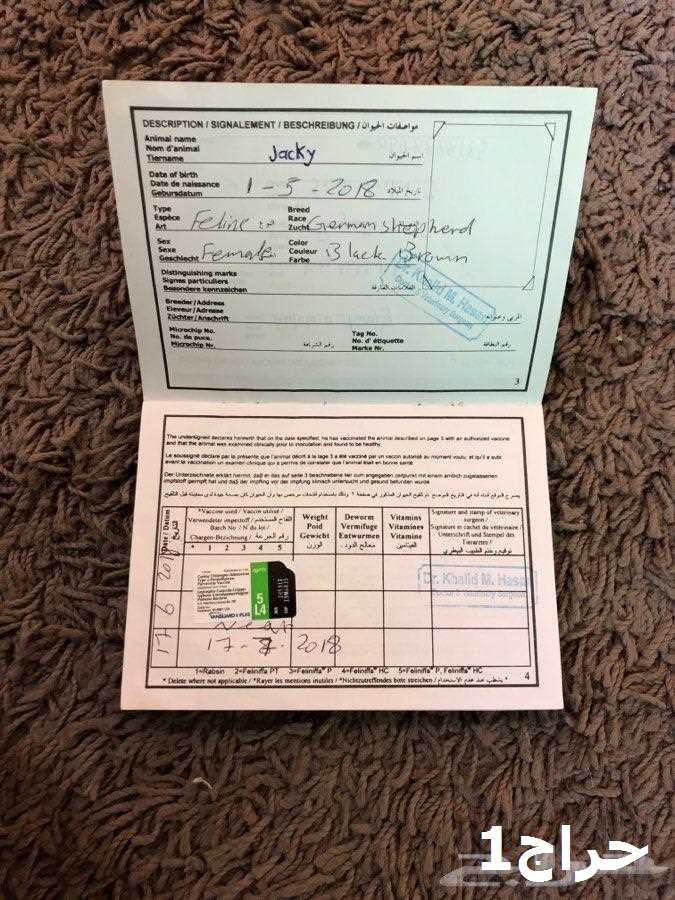 DESCRIPTION / SIGNALEMENT / BESCHREIBUNG / مواصفات الحيوان
Animal name
Nom d'animal
Tiername
Jacky
اسم الحيوان
Date of birth
Date de naissance
Gebursdatum
1 - 5 - 2018
تاريخ الميلاد
Type
Espèce
Art
Feline
Breed
Race
Zucht
German shepherd
Sex
Sexe
Geschlecht
Female
Color
Couleur
Farbe
Black Brown
Distinguishing marks
Signes particuliers
Besondere kennzeichen
العلامات الفارقة
Breeder/Address
Eleveur/Adresse
Züchter/Anschrift
المربي وعنوانه
Microchip No.
No. de puce.
Microchip Nr.
رقم الشريحة
Tag No.
No. d' étiquette
Marke Nr.
رقم البطاقة
Dr. Khalid M. Hasan
Veterinary Surgeon
3
The undersigned declares herewith that on the date specified, he has vaccinated the animal described on page 3 with an authorized vaccine
and that the animal was examined clinically prior to inoculation and found to be healthy.
Le soussigné déclare par la présente que l'animal décrit à la page 3 a été vacciné par un vaccin autorisé au moment voulu, et qu'il a subi
avant la vaccination un examen clinique qui a permis de constater que l'animal était en bonne santé
Der Unterzeichnete erklärt hiermit, daß er das auf seite 3 beschriebene tier zum angegeben zeitpunkt mit einem amtlich zugelassenen
impfstoff geimpft hat und daß der impfling vor der impfung klinisch untersucht und gesund befunden wurde
Date / Datum
التاريخ
*Vaccine used / Vaccin utilisé /
Verwendeter impfstoff / اللقاح المستخدم
Batch No. / N° du lot /
Chargen-Bezeichnung / رقم الجرعة
* 1 2 3 4 5
Weight
Poid
Gewicht
الوزن
Deworm
Vermifuge
Entwurmen
معالج الدود
Vitamins
Vitamines
Vitamine
الفيتامين
Signature and stamp of veterinary
surgeon /
Signature et cachet du vétérinaire /
Unterschrift und Stempel des
Tierarztes /
توقيع وختم الطبيب البيطري
17 6 2018
5
L4
VANGUARD PLUS
Dr. Khalid M. Hasan
Veterinary Surgeon
17 - 7 - 2018
1=Rabsin 2=Feliniffa PT 3=Feliniffa P 4=Feliniffa HC 5=Feliniffa P, Feliniffa HC
* Delete where not applicable / *Rayer les mentions inutiles / *Nichtzutreffendes bitte streichen / *يشطب عند عدم الاستخدام
4
حراج1